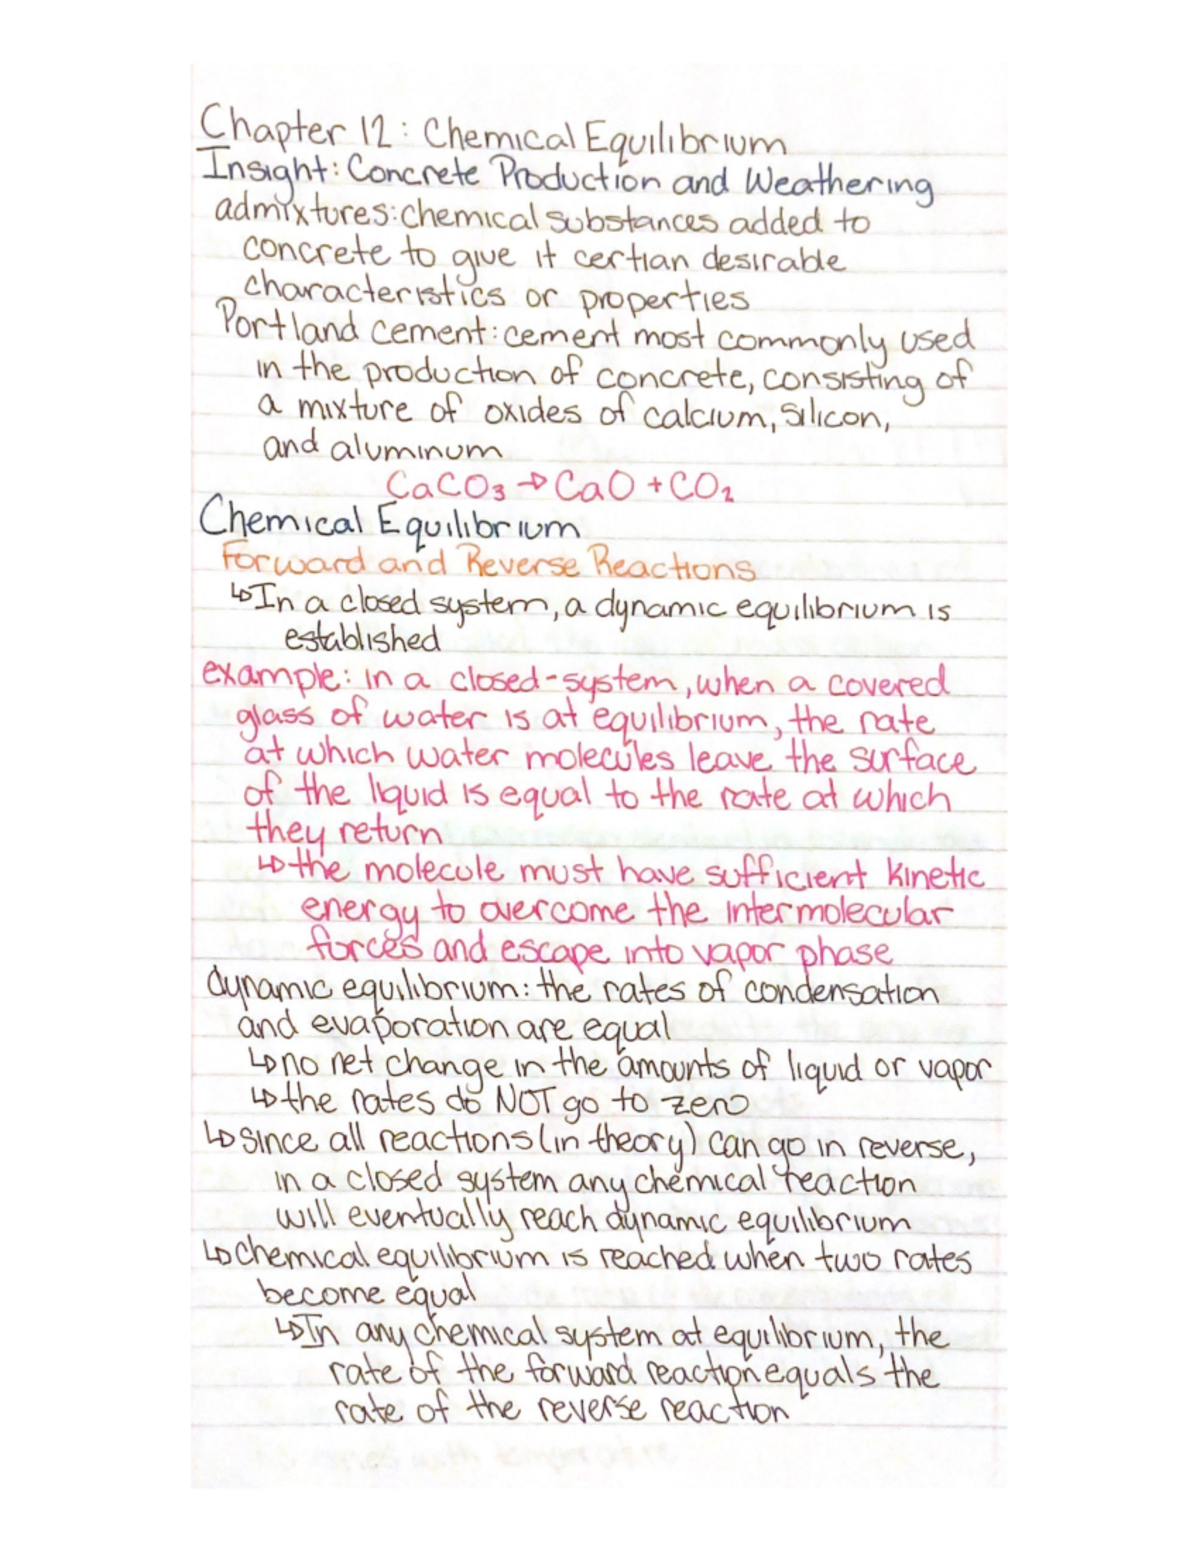 Chapter 12: Chemical Equilibrium
Insight: Concrete Production and Weathering
admixtures: chemical substances added to
concrete to give it certian desirable
characteristics or properties
Portland cement: cement most commonly used
in the production of concrete, consisting of
a mixture of oxides of calcium, silicon,
and aluminum
CaCO₃ → CaO + CO₂
Chemical Equilibrium
Forward and Reverse Reactions
↳ In a closed system, a dynamic equilibrium is
established
example: in a closed-system, when a covered
glass of water is at equilibrium, the rate
at which water molecules leave the surface
of the liquid is equal to the rate at which
they return
↳ the molecule must have sufficient kinetic
energy to overcome the intermolecular
forces and escape into vapor phase
dynamic equilibrium: the rates of condensation
and evaporation are equal
↳ no net change in the amounts of liquid or vapor
↳ the rates do NOT go to zero
↳ since all reactions (in theory) can go in reverse,
in a closed system any chemical reaction
will eventually reach dynamic equilibrium
↳ chemical equilibrium is reached when two rates
become equal
↳ In any chemical system at equilibrium, the
rate of the forward reaction equals the
rate of the reverse reaction